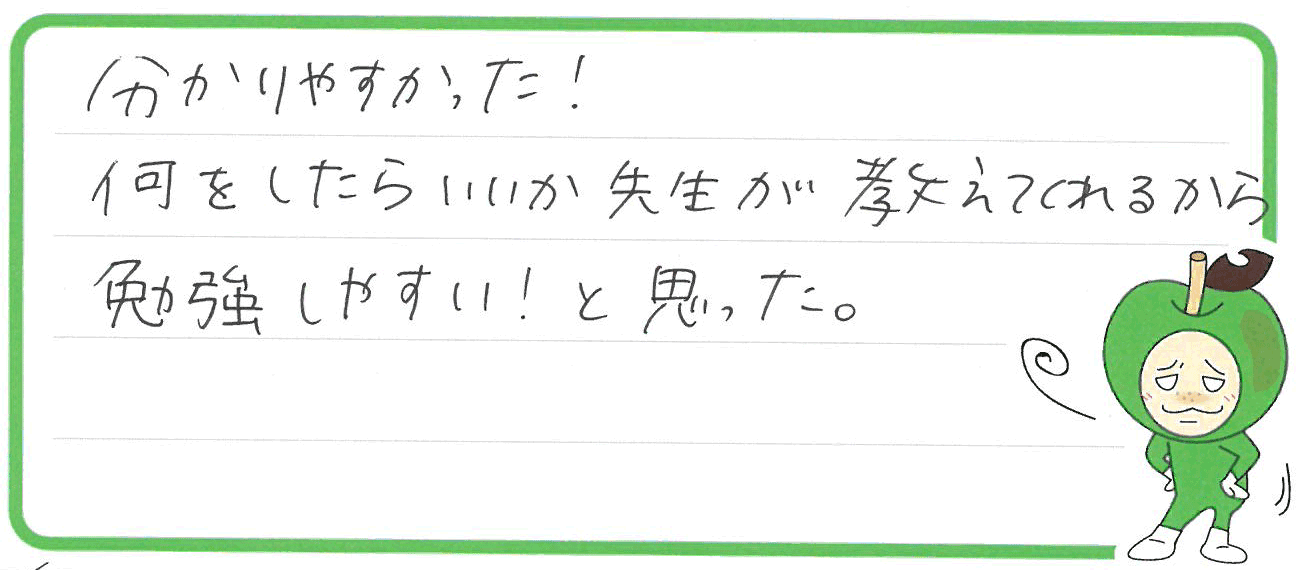 分かりやすかった！
何をしたらいいか先生が教えてくれるから
勉強しやすい！と思った。